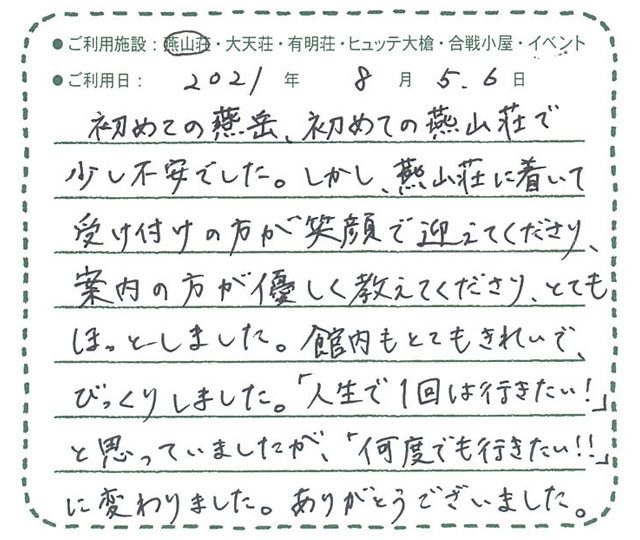 ●ご利用施設：燕山荘・大天荘・有明荘・ヒュッテ大槍・合戦小屋・イベント
●ご利用日：2021年 8月5.6日
初めての燕岳、初めての燕山荘で
少し不安でした。しかし、燕山荘に着いて
受け付けの方が笑顔で迎えてくださり、
案内の方が優しく教えてくださり、とても
ほっとしました。館内もとてもきれいで、
びっくりしました。「人生で1回は行きたい!」
と思っていましたが、「何度でも行きたい!!」
に変わりました。ありがとうございました。